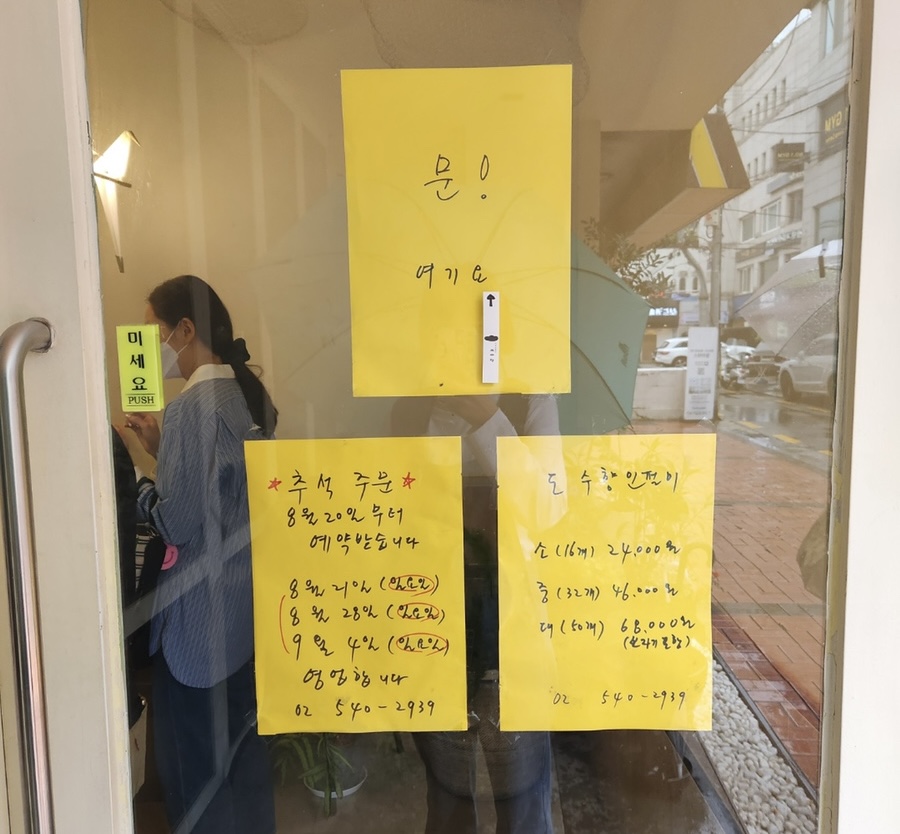 문!
여기요
미세요
PUSH
*추석 주문*
8월 20일 부터
예약받습니다
8월 21일 (일요일)
8월 28일 (일요일)
9월 4일 (일요일)
영업합니다
02 540-2939
도수향 인절미
소(16개) 24,000원
중(32개) 46,000원
대(50개) 68,000원
(보자기포함)
02 540-2939